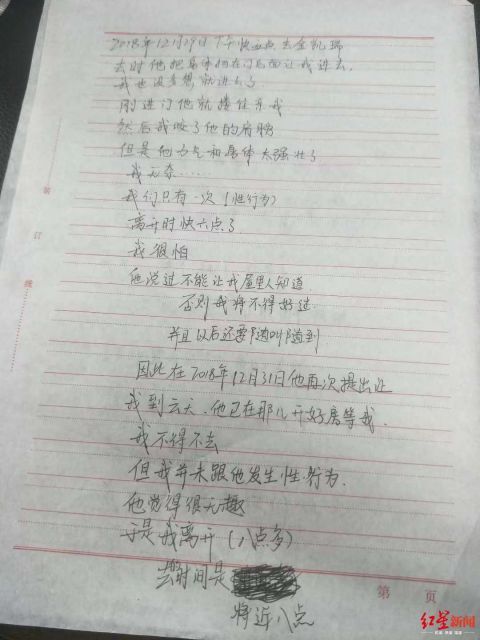 2018年12月29日下午快五点去金凯瑞
去时他把身体挡在门后面让我进去,
我也没多想就进去了
刚进门他就搂住我
然后我咬了他的肩膀
但是他力气和身体太强壮了
我无奈……
我们只有一次(性行为)
离开时快六点了
我很怕
他说过不能让我屋里人知道
否则我将不得好过
并且以后还要随叫随到
因此在2018年12月31日他再次提出让
我到云天,他已在那儿开好房等我.
我不得不去
但我并未跟他发生性行为.
他觉得很无趣
于是我离开(八点多)
去时间是
将近八点
装
订
线
第 页
红星新闻